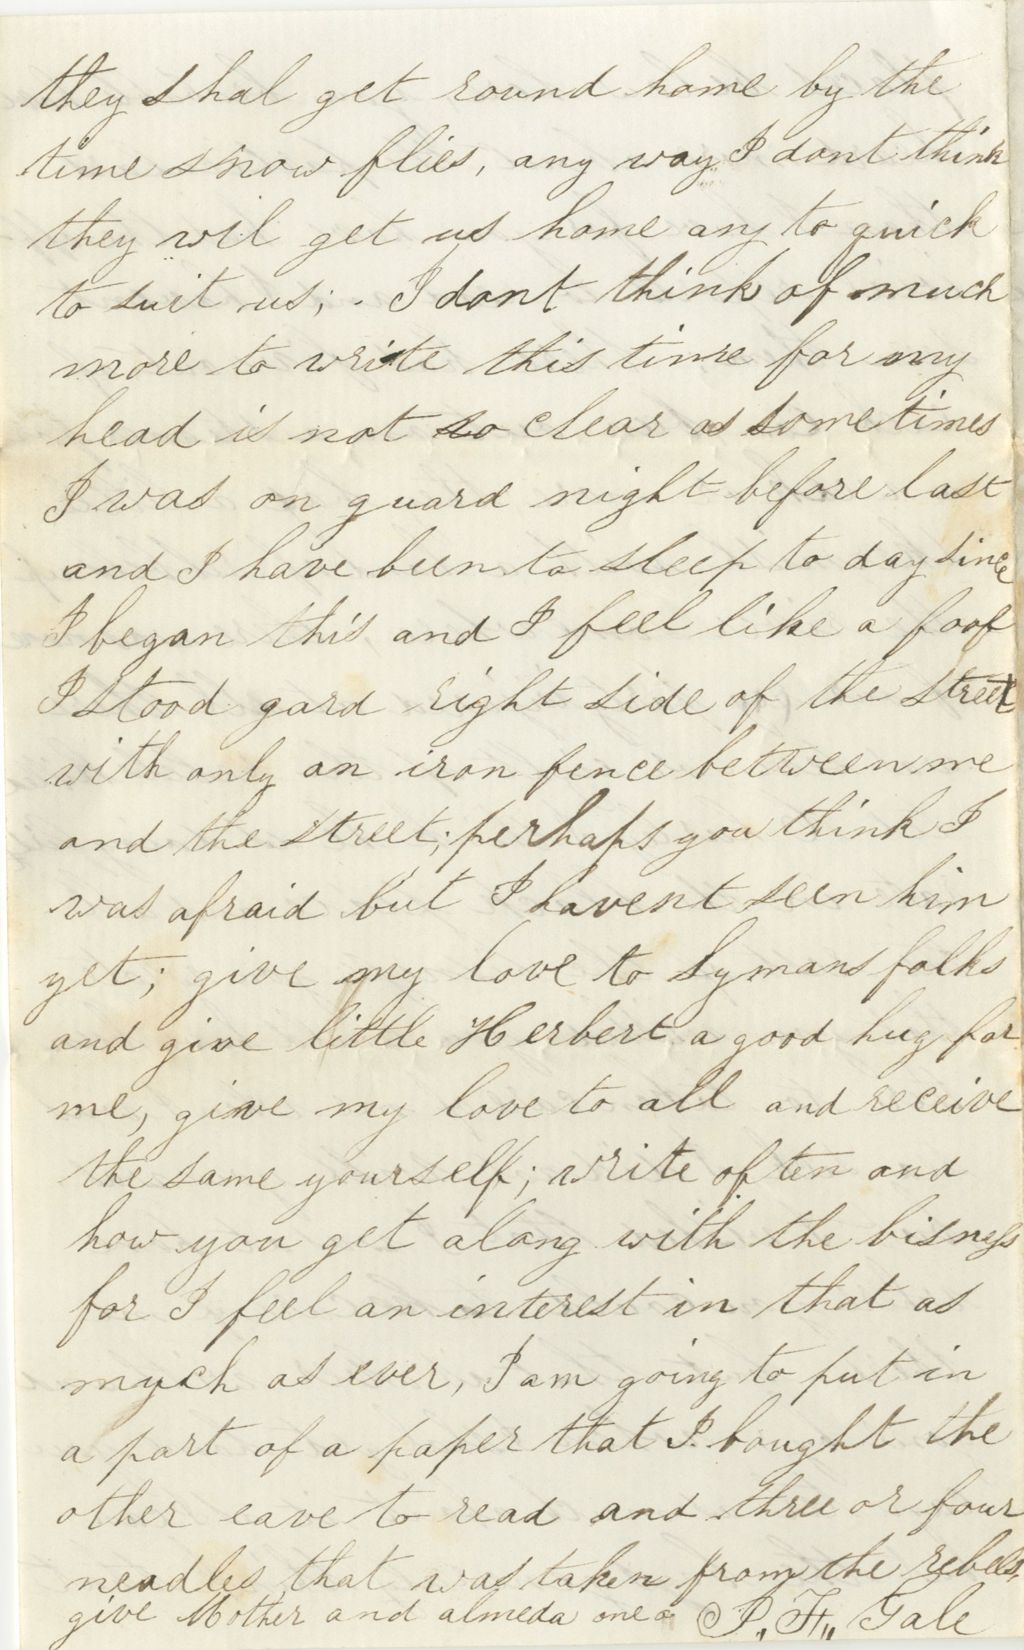 they shal get round home by the
time snow flies, any way I dont think
they wil get us home any to quick
to suit us; . I dont think of much
more to write this time for my
head is not so clear as sometimes
I was on guard night before last
and I have been to sleep to day since
I began this and I feel like a foof
I stood gard right side of the street
with only an iron fence bettween me
and the street; perhaps you think I
was afraid but I havent seen him
yet; give my love to Lymans folks
and give little Herbert a good hug for
me, give my love to all and receive
the same yourself; write often and
how you get along with the bisness
for I feel an interest in that as
much as ever, I am going to put in
a part of a paper that I bought the
other eave to read and three or four
neadles that was taken from the rebels,
give Mother and almeda one a P. F. Gale